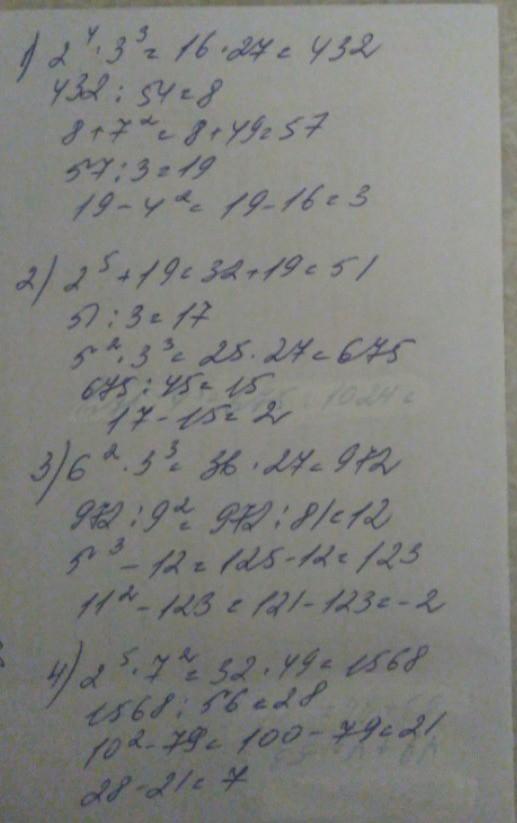 1) 2⁴·3³=16·27=432
432:54=8
8+7²=8+49=57
57:3=19
19-4²=19-16=3
2) 2⁵+19=32+19=51
51:3=17
5²·3³=25·27=675
675:45=15
17-15=2
3) 6²·3³=36·27=972
972:9²=972:81=12
5³-12=125-12=123
11²-123=121-123=-2
4) 2⁵·7²=32·49=1568
1568:56=28
10²-79=100-79=21
28-21=7